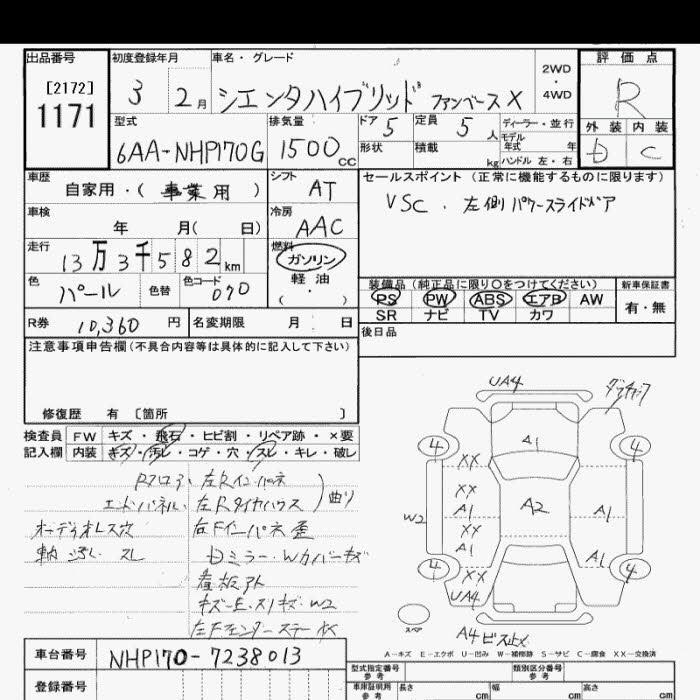 出品番号
[2172]
1171
初度登録年月
3 2月
車名・グレード
シエンタハイブリッド ファンベースX
2WD
・
4WD
評価点
R
外装 内装
D C
型式
6AA-NHP170G
排気量
1500cc
ドア 5
定員 5人
形状
積載 kg
ディーラー・並行
モデル
年式 年
ハンドル 左・右
車歴
自家用・(事業用)
シフト
AT
セールスポイント(正常に機能するものに限ります)
VSC . 左側パワースライドドア
車検
年 月( 日)
冷房
AAC
走行
13万3千582km
燃料
ガソリン
軽油
( ・ )
色
パール
色替
色コード
070
装備品(純正品に限り○をつけてください)
PS PW ABS エアB AW
SR ナビ TV カワ
新車保証書
有・無
R券 10,360円
名変期限 月 日
後日品
注意事項申告欄(不具合内容等は具体的に記入して下さい)
修復歴 有 〔箇所 〕
検査員
記入欄
FW キズ・飛石・ヒビ割・リペア跡・×要
内装 キズ・汚レ・コゲ・穴・スレ・キレ・破レ
Rフロア、左Rインパネ
エンドパネル、左Rタイヤハウス
曲り
オーディオレス穴
右Fインパネ歪
スレ
ドミラー・Wカバーキズ
看板アト
W2
左Fフェンダーステー
UA4
4 4
A1
XX
XX
A1
XX
A1
XX
UA4
W2
A2
A1
A1
4 4
スペア
A4 ビス止メ
A-キズ E-エクボ U-凹み W-補修跡 S-サビ C-腐食 XX-交換済
車台番号
NHP170-7238013
登録番号
型式指定番号
類別区分番号
車庫証明用
参考
長さ cm
幅 cm
高さ cm